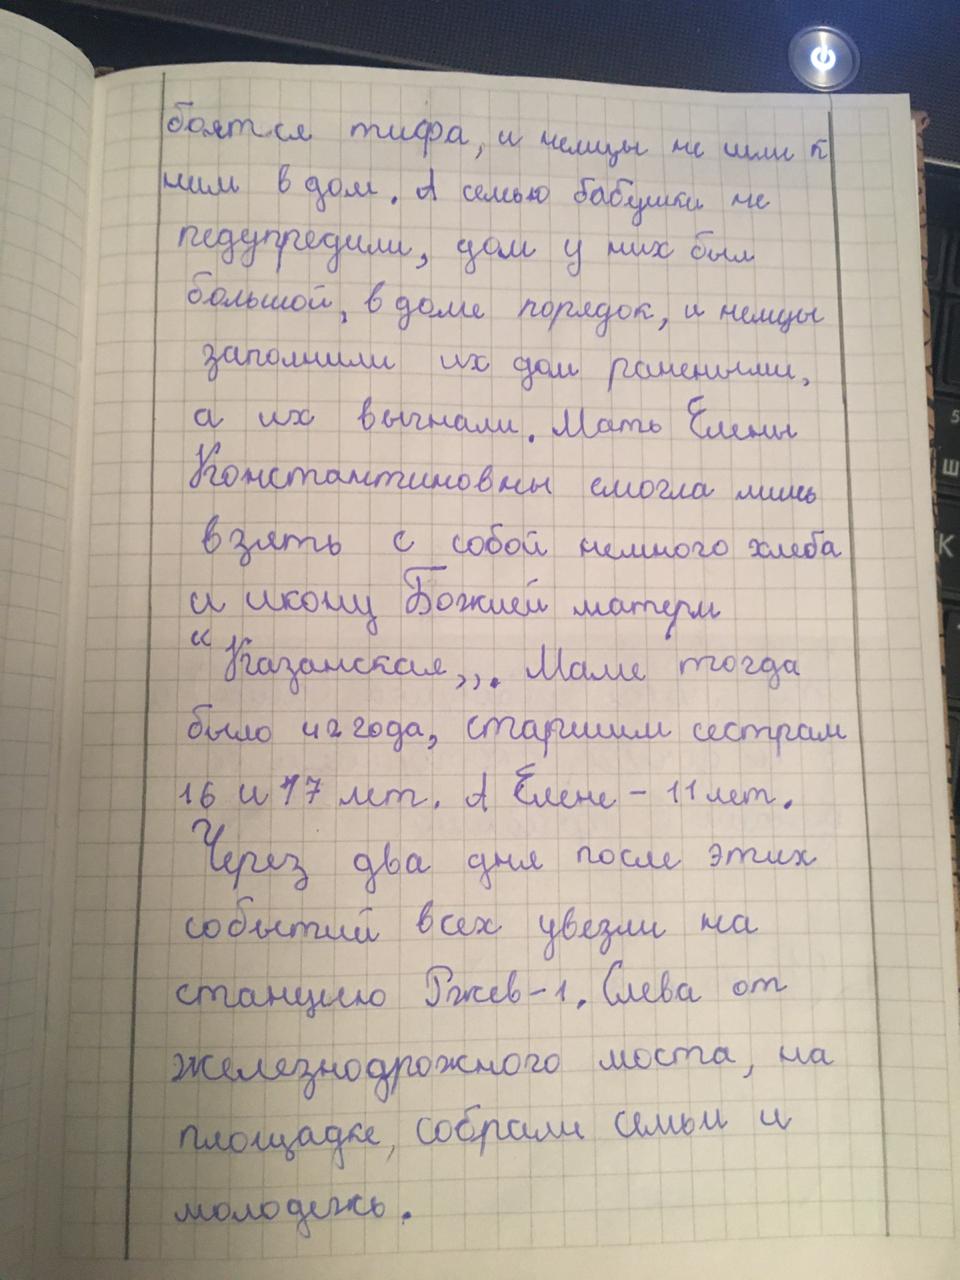 боятся тифа, и немцы не шли к
ним в дом. А семью бабушки не
педупредили, дом у них был
большой, в доме порядок, и немцы
заполнили их дом ранеными,
а их выгнали. Мать Елены
Константиновны смогла лишь
взять с собой немного хлеба
и икону Божией матери
“Казанская„. Маме тогда
было 42 года, старшим сестрам
16 и 17 лет. А Елене - 11 лет.
Через два дня после этих
событий всех увезли на
станцию Ржев-1. Слева от
железнодрожного моста, на
площадке, собрали семьи и
молодежь.
5
Ш
К